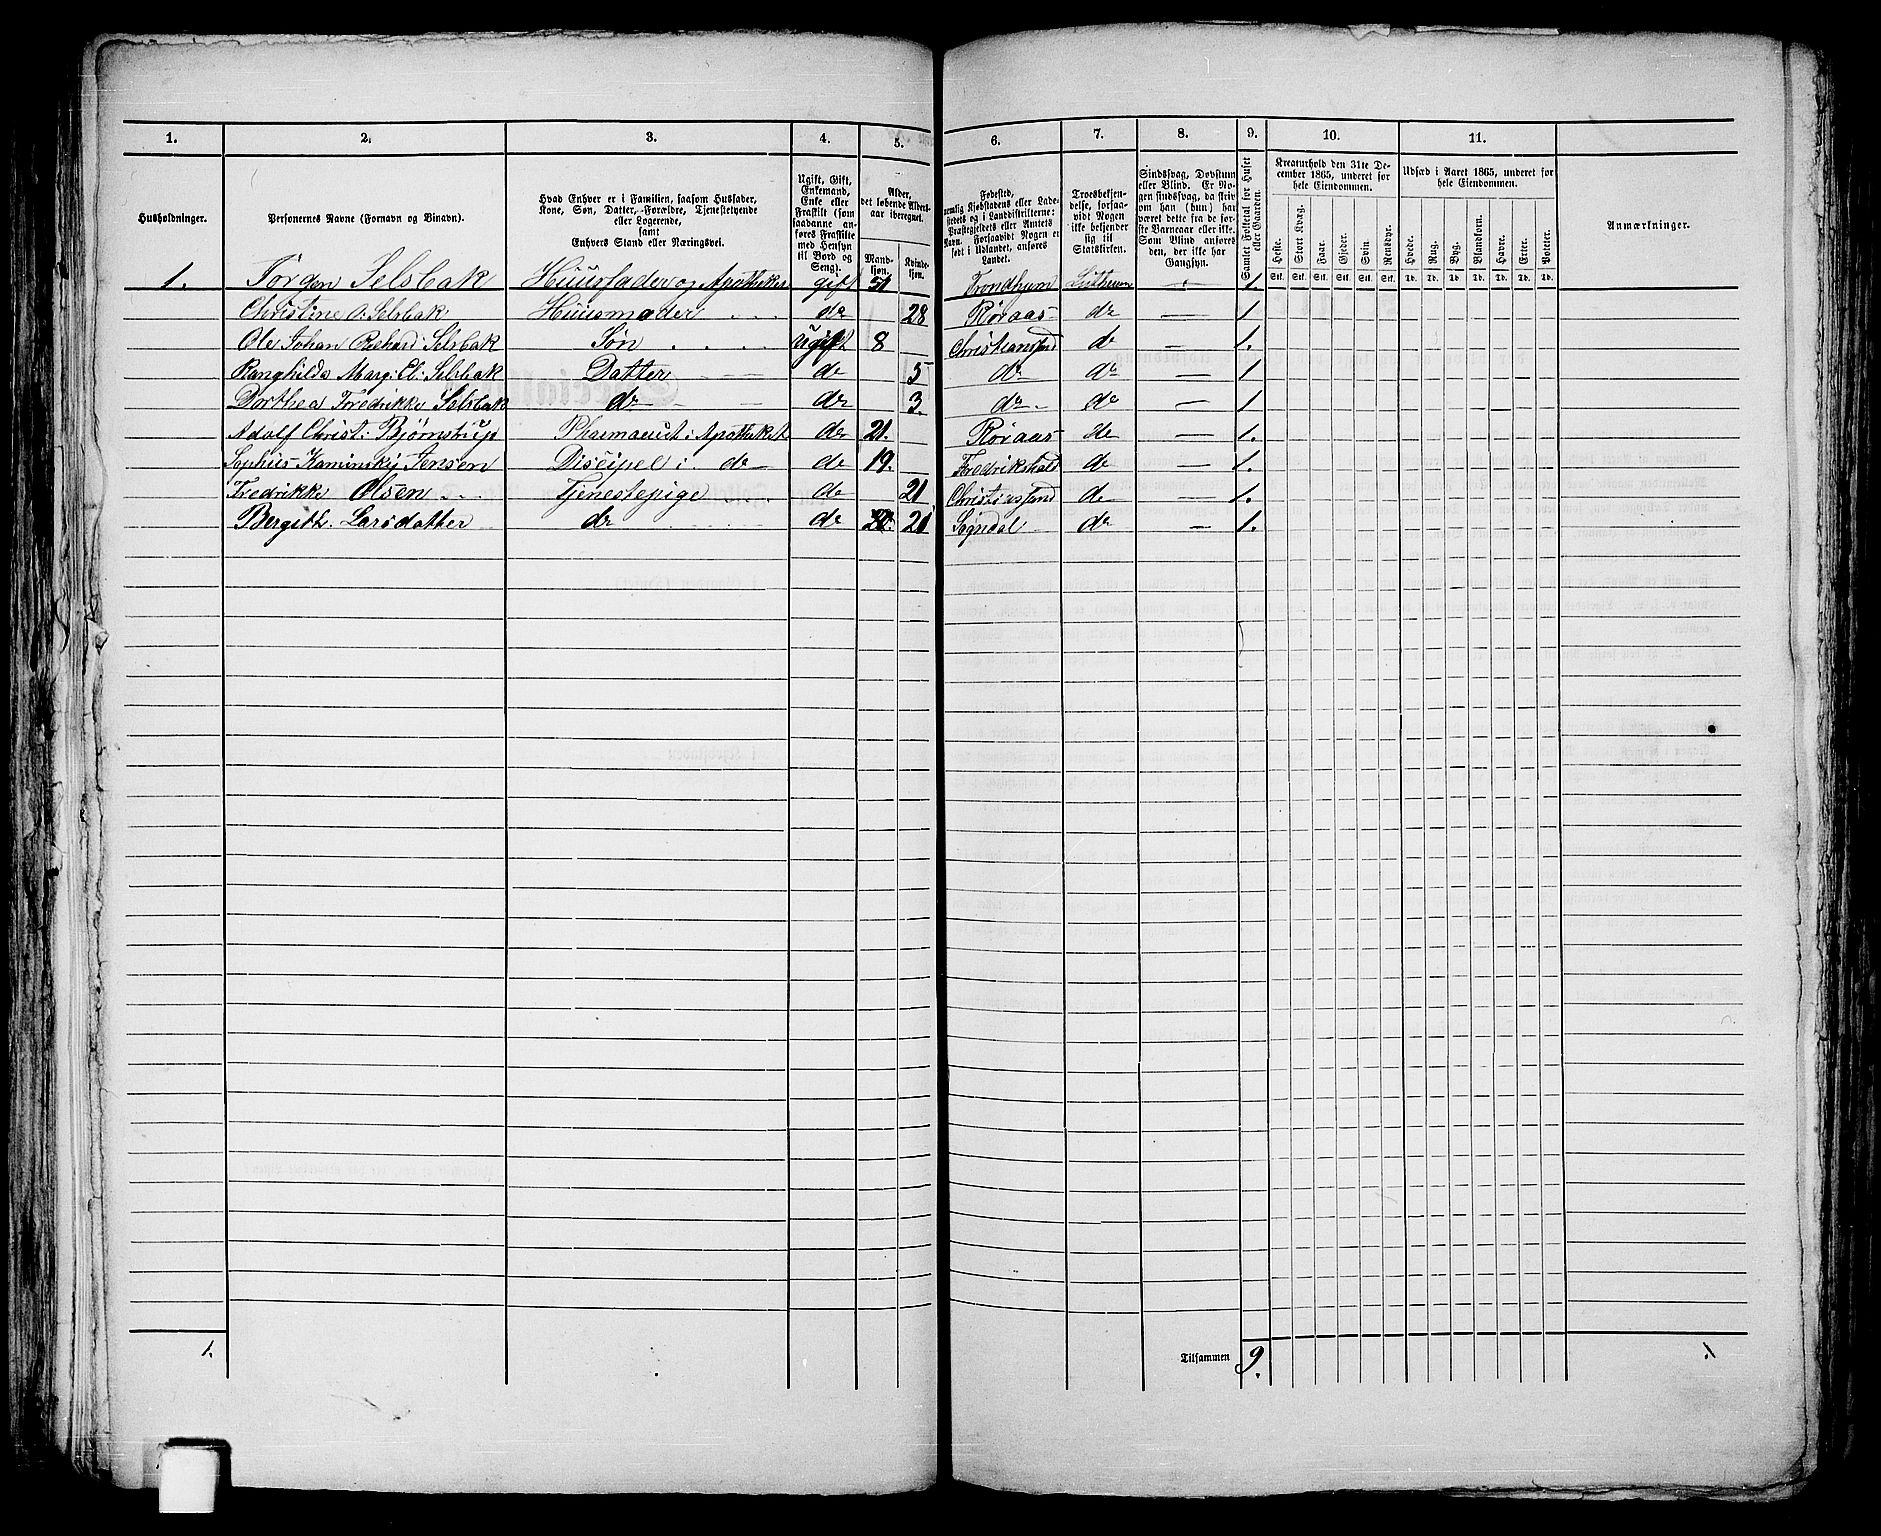 1. 2. 3. 4. 5. 6. 7. 8. 9. 10. 11.
Husholdninger.
Personernes Navne (Fornavn og Binavn).
Hvad Enhver er i Familien, saasom Husfader,
Kone, Søn, Datter, Forældre, Tjenestetyende
eller Logerende,
samt
Enhvers Stand eller Næringsvei.
Ugift, Gift,
Enkemand,
Enke eller
Fraskilt (som
saadanne an-
føres Fraskilte
med Hensyn
til Bord og
Seng).
Alder,
det løbende Alders-
aar iberegnet.
Mand-
kjøn.
Kvinde-
kjøn.
Fødested,
nemlig Kjøbstadens eller Lade-
stedets og i Landdistrikterne:
Præstegjeldets eller Amtets
Navn. Forsaavidt Nogen er
født i Udlandet, anføres
Landet.
Troesbekjen-
delse, forsaa-
vidt Nogen
ikke bekjender
sig til
Statskirken.
Sindssvag, Døvstum
eller Blind. Er No-
gen sindssvag, da skriv
om han (hun) har
været dette fra de før-
ste Barneaar eller ikke.
Som Blind anføres
den, der ikke har
Gangsyn.
Samlet Folketal for Huset
eller Gaarden.
Kreaturhold den 31te De-
cember 1865, underet for
hele Eiendommen.
Heste. Stort Kvæg. Faar. Gjeder. Svin. Rensdyr.
Stk. Stk. Stk. Stk. Stk. Stk.
Udsæd i Aaret 1865, underet for
hele Eiendommen.
Hvede. Rug. Byg. Blandkorn. Havre. Erter. Poteter.
Td. Td. Td. Td. Td. Td. Td.
Anmærkninger.
1. Jørgen Selsbak Huusfader og Apotheker gift 51 Trondhjem 1.
Christine O. Selsbak Huusmoder do 28 Røraas do — 1.
Ole Johan Richard Selsbak Søn ugift 8 Christianssand do — 1.
Ranghilda Marg: El: Selsbak Datter do 5 do do — 1
Dorthea Fredrikke Selsbak do do 3. do do — 1
Adolf Christ: Bjørnstrup Pharmaceut i Apotheket do 21. Røraas do — 1.
Sophus Kaminsky Jensen Discipel i do do 19. Fredrikshald do — 1.
Fredrikke Olsen Tjenestepige do 21 Christianssand do — 1.
Bergith. Larsdatter do do 21 Sogndal do — 1.
1. Tilsammen 9. 1